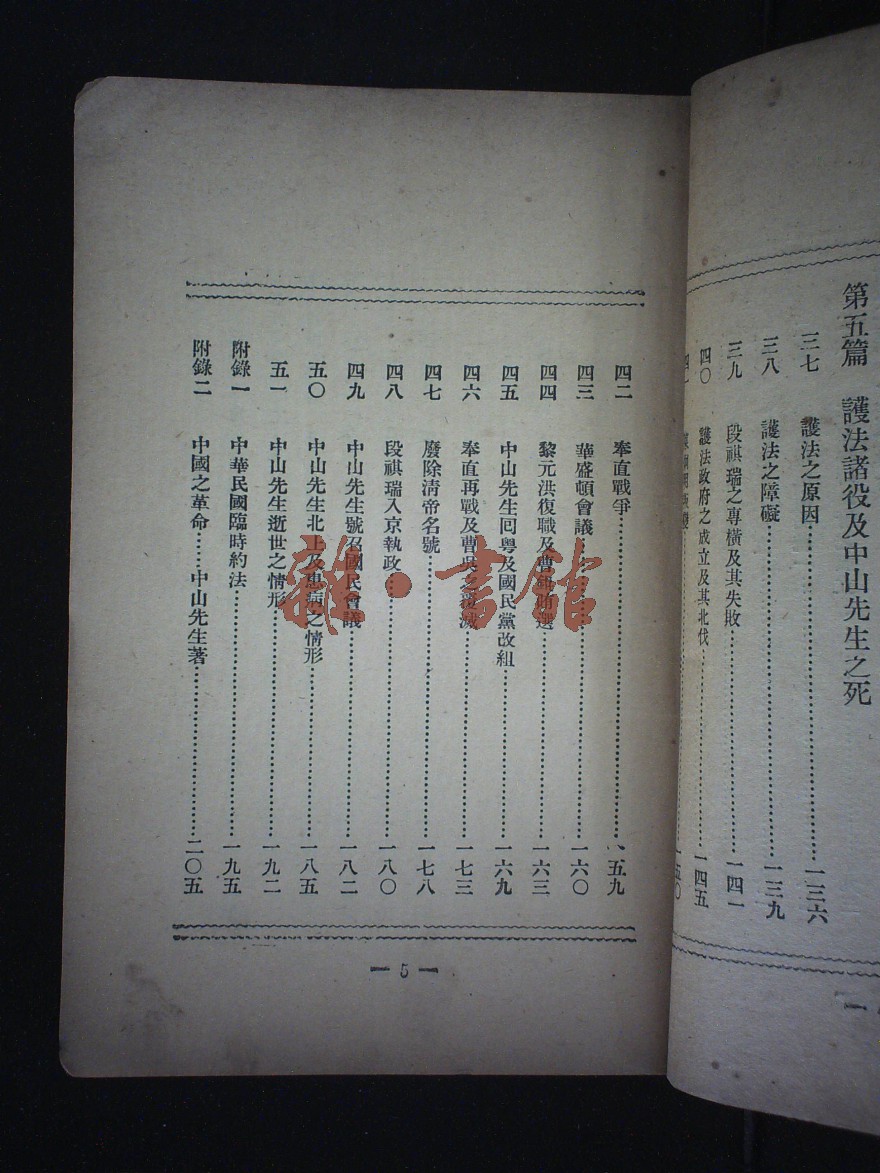 第五篇　護法諸役及中山先生之死
三七　護法之原因……一三六
三八　護法之障礙……一三九
三九　段祺瑞之專橫及其失敗……一四一
四〇　護法政府之成立及其北伐……一四五
一五〇
四二　奉直戰爭……一五九
四三　華盛頓會議……一六〇
四四　黎元洪復職及曹錕賄選……一六三
四五　中山先生回粵及國民黨改組……一六九
四六　奉直再戰及曹吳之覆滅……一七三
四七　廢除清帝名號……一七八
四八　段祺瑞入京執政……一八〇
四九　中山先生號召國民會議……一八二
五〇　中山先生北上及患病之情形……一八五
五一　中山先生逝世之情形……一九二
附錄一　中華民國臨時約法……一九五
附錄二　中國之革命……中山先生著……二〇五
— 5 —
雜·書館